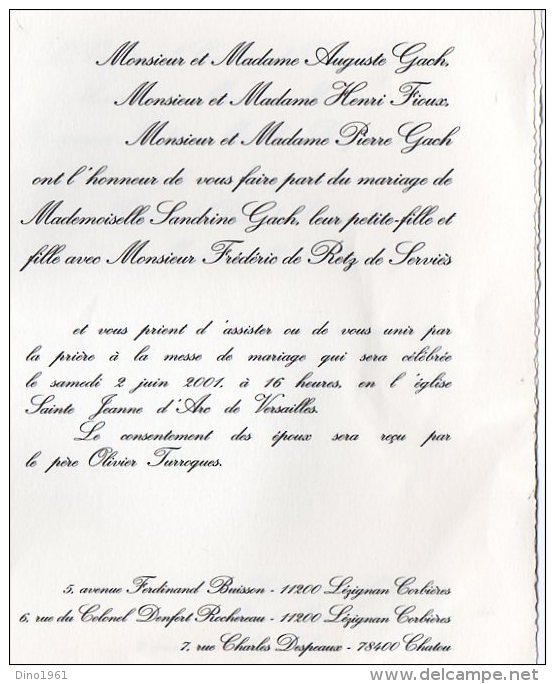 Monsieur et Madame Auguste Gach,
Monsieur et Madame Henri Fioux,
Monsieur et Madame Pierre Gach
ont l'honneur de vous faire part du mariage de
Mademoiselle Sandrine Gach, leur petite-fille et
fille avec Monsieur Frédéric de Retz de Serviès
et vous prient d'assister ou de vous unir par
la prière à la messe de mariage qui sera célébrée
le samedi 2 juin 2001, à 16 heures, en l'église
Sainte Jeanne d'Arc de Versailles.
Le consentement des époux sera reçu par
le père Olivier Turroques.
5, avenue Ferdinand Buisson - 11200 Lézignan Corbières
6, rue du Colonel Denfert Rochereau - 11200 Lézignan Corbières
7, rue Charles Despeaux - 78400 Chatou
Dino1961
delcampe.net